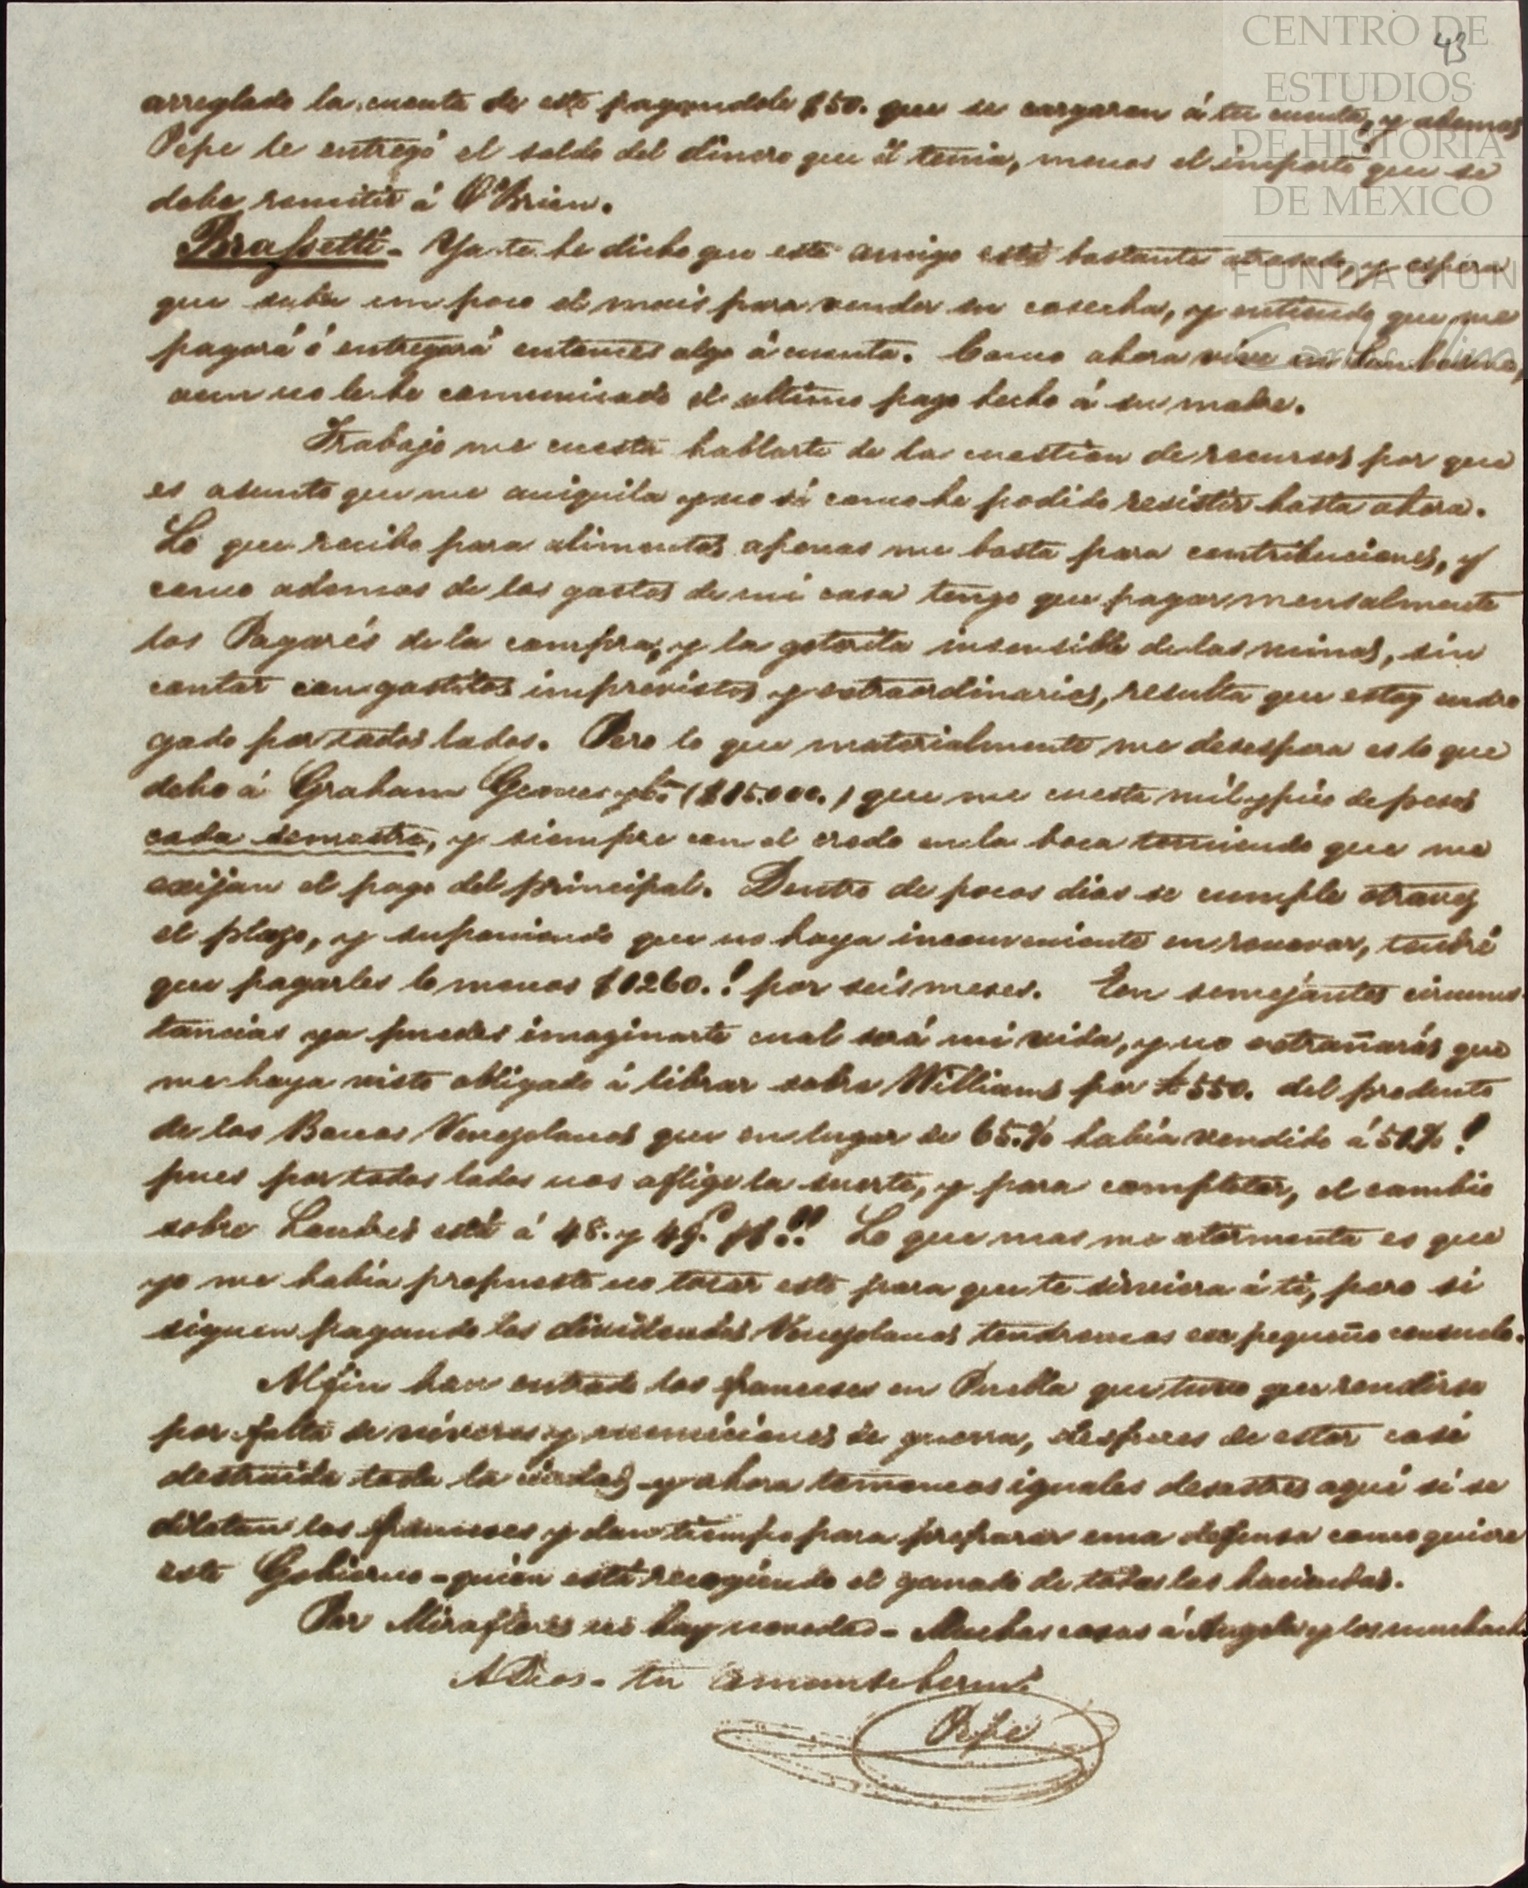 43
CENTRO DE
ESTUDIOS
DE HISTORIA
DE MEXICO
FUNDACION
arreglado la cuenta de este pagandole $50. que se cargaron á tu cuenta, y ademas
Pepe le entregó el saldo del dinero que él tenia, menos el importe que se
debe remitir á O'Brien.
Brassetti - Ya te he dicho que este amigo está bastante atrasado, y espera
que suba un poco el mais para vender su cosecha, y entiendo que me
pagará ó entregará entonces algo á cuenta. Como ahora vive en
aun no le he comunicado el ultimo pago hecho á su madre.
Trabajo me cuesta hablarte de la cuestion de recursos por que
es asunto que me aniquila y no sé como he podido resistir hasta ahora.
Lo que recibo para alimentos apenas me basta para contribuciones, y
como ademas de los gastos de mi casa tengo que pagar mensalmente
los Pagarés de la compra, y la goterita insensible de las minas, sin
contar con gastitos imprevistos y extraordinarios, resulta que estoy endro
gado por todos lados. Pero lo que materialmente me desespera es lo que
debo á Graham Geaves y Ca. ($15.000.) que me cuesta mil y pico de pesos
cada semestre, y siempre con el credo en la boca temiendo que me
exijan el pago del principal. Dentro de pocos dias se cumple otravez
el plazo, y suponiendo que no haya inconveniente en renovar, tendré
que pagarles lo menos $1260.! por seis meses. En semejantes circuns-
tancias ya puedes imaginarte cual será mi vida, y no extrañarás que
me haya visto obligado á librar sobre Williams por £550. del producto
de los Bonos Venezolanos que en lugar de 65.% habia vendido á 51%!
pues por todos lados nos aflige la suerte, y para completar, el cambio
sobre Londres está á 48. y 49. !! Lo que mas me atormenta es que
yo me habia propuesto no tocar esto para que te sirviera á ti, pero si
siguen pagando los dividendos Venezolanos tendremos ese pequeño consuelo.
Al fin han entrado los franceses en Puebla que tuvo que rendirse
por falta de víveres y municiones de guerra, despues de estar casi
destruida toda la ciudad - y ahora tememos iguales desastres aquí si se
dilatan los franceses y dan tiempo para preparar una defensa como quiere
este Gobierno - quien está recogiendo el ganado de todas las haciendas.
Por Miraflores no hay novedad - Muchas cosas á Angela y los muchach
A Dios - tu amante hermo
Pepe